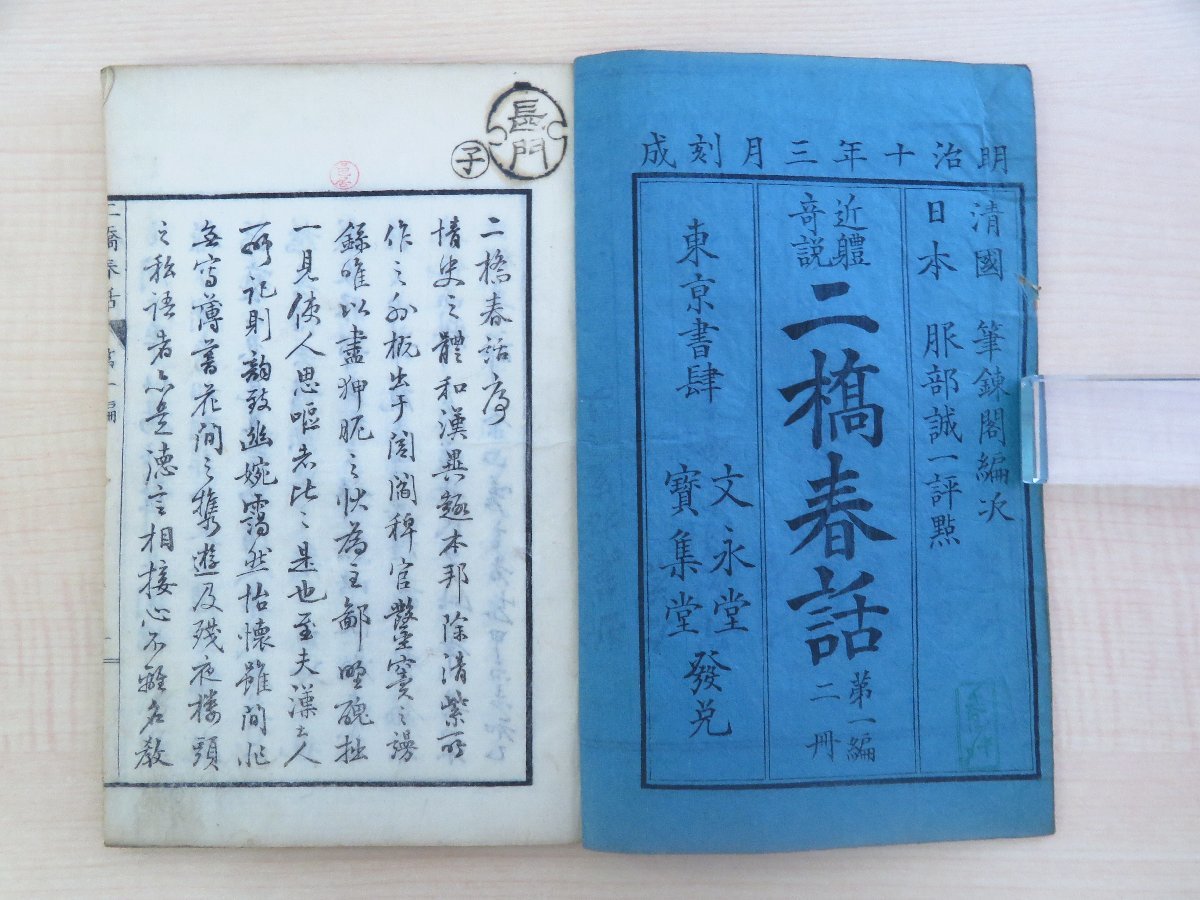 明治十年三月刻成
清國 筆鍊閣編次
日本 服部誠一評點
近軆奇説
二橋春話 第一編 二冊
東京書肆 文永堂 寶集堂 發兌
長門
子
二橋春話序
情史之體和漢異趣本邦除清紫所
作之外概出于閭閻稗官鑿空之謗
録唯以盡狎昵之状為主鄙野醜拙
一見使人思嘔者比々是也至夫漢土人
所記則韵致幽婉靄然怡懷雖間非
無寫薄暮花間之携遊及殘夜樓頭
之私語者亦是德言相接心不離名教
二橋春話 第一編